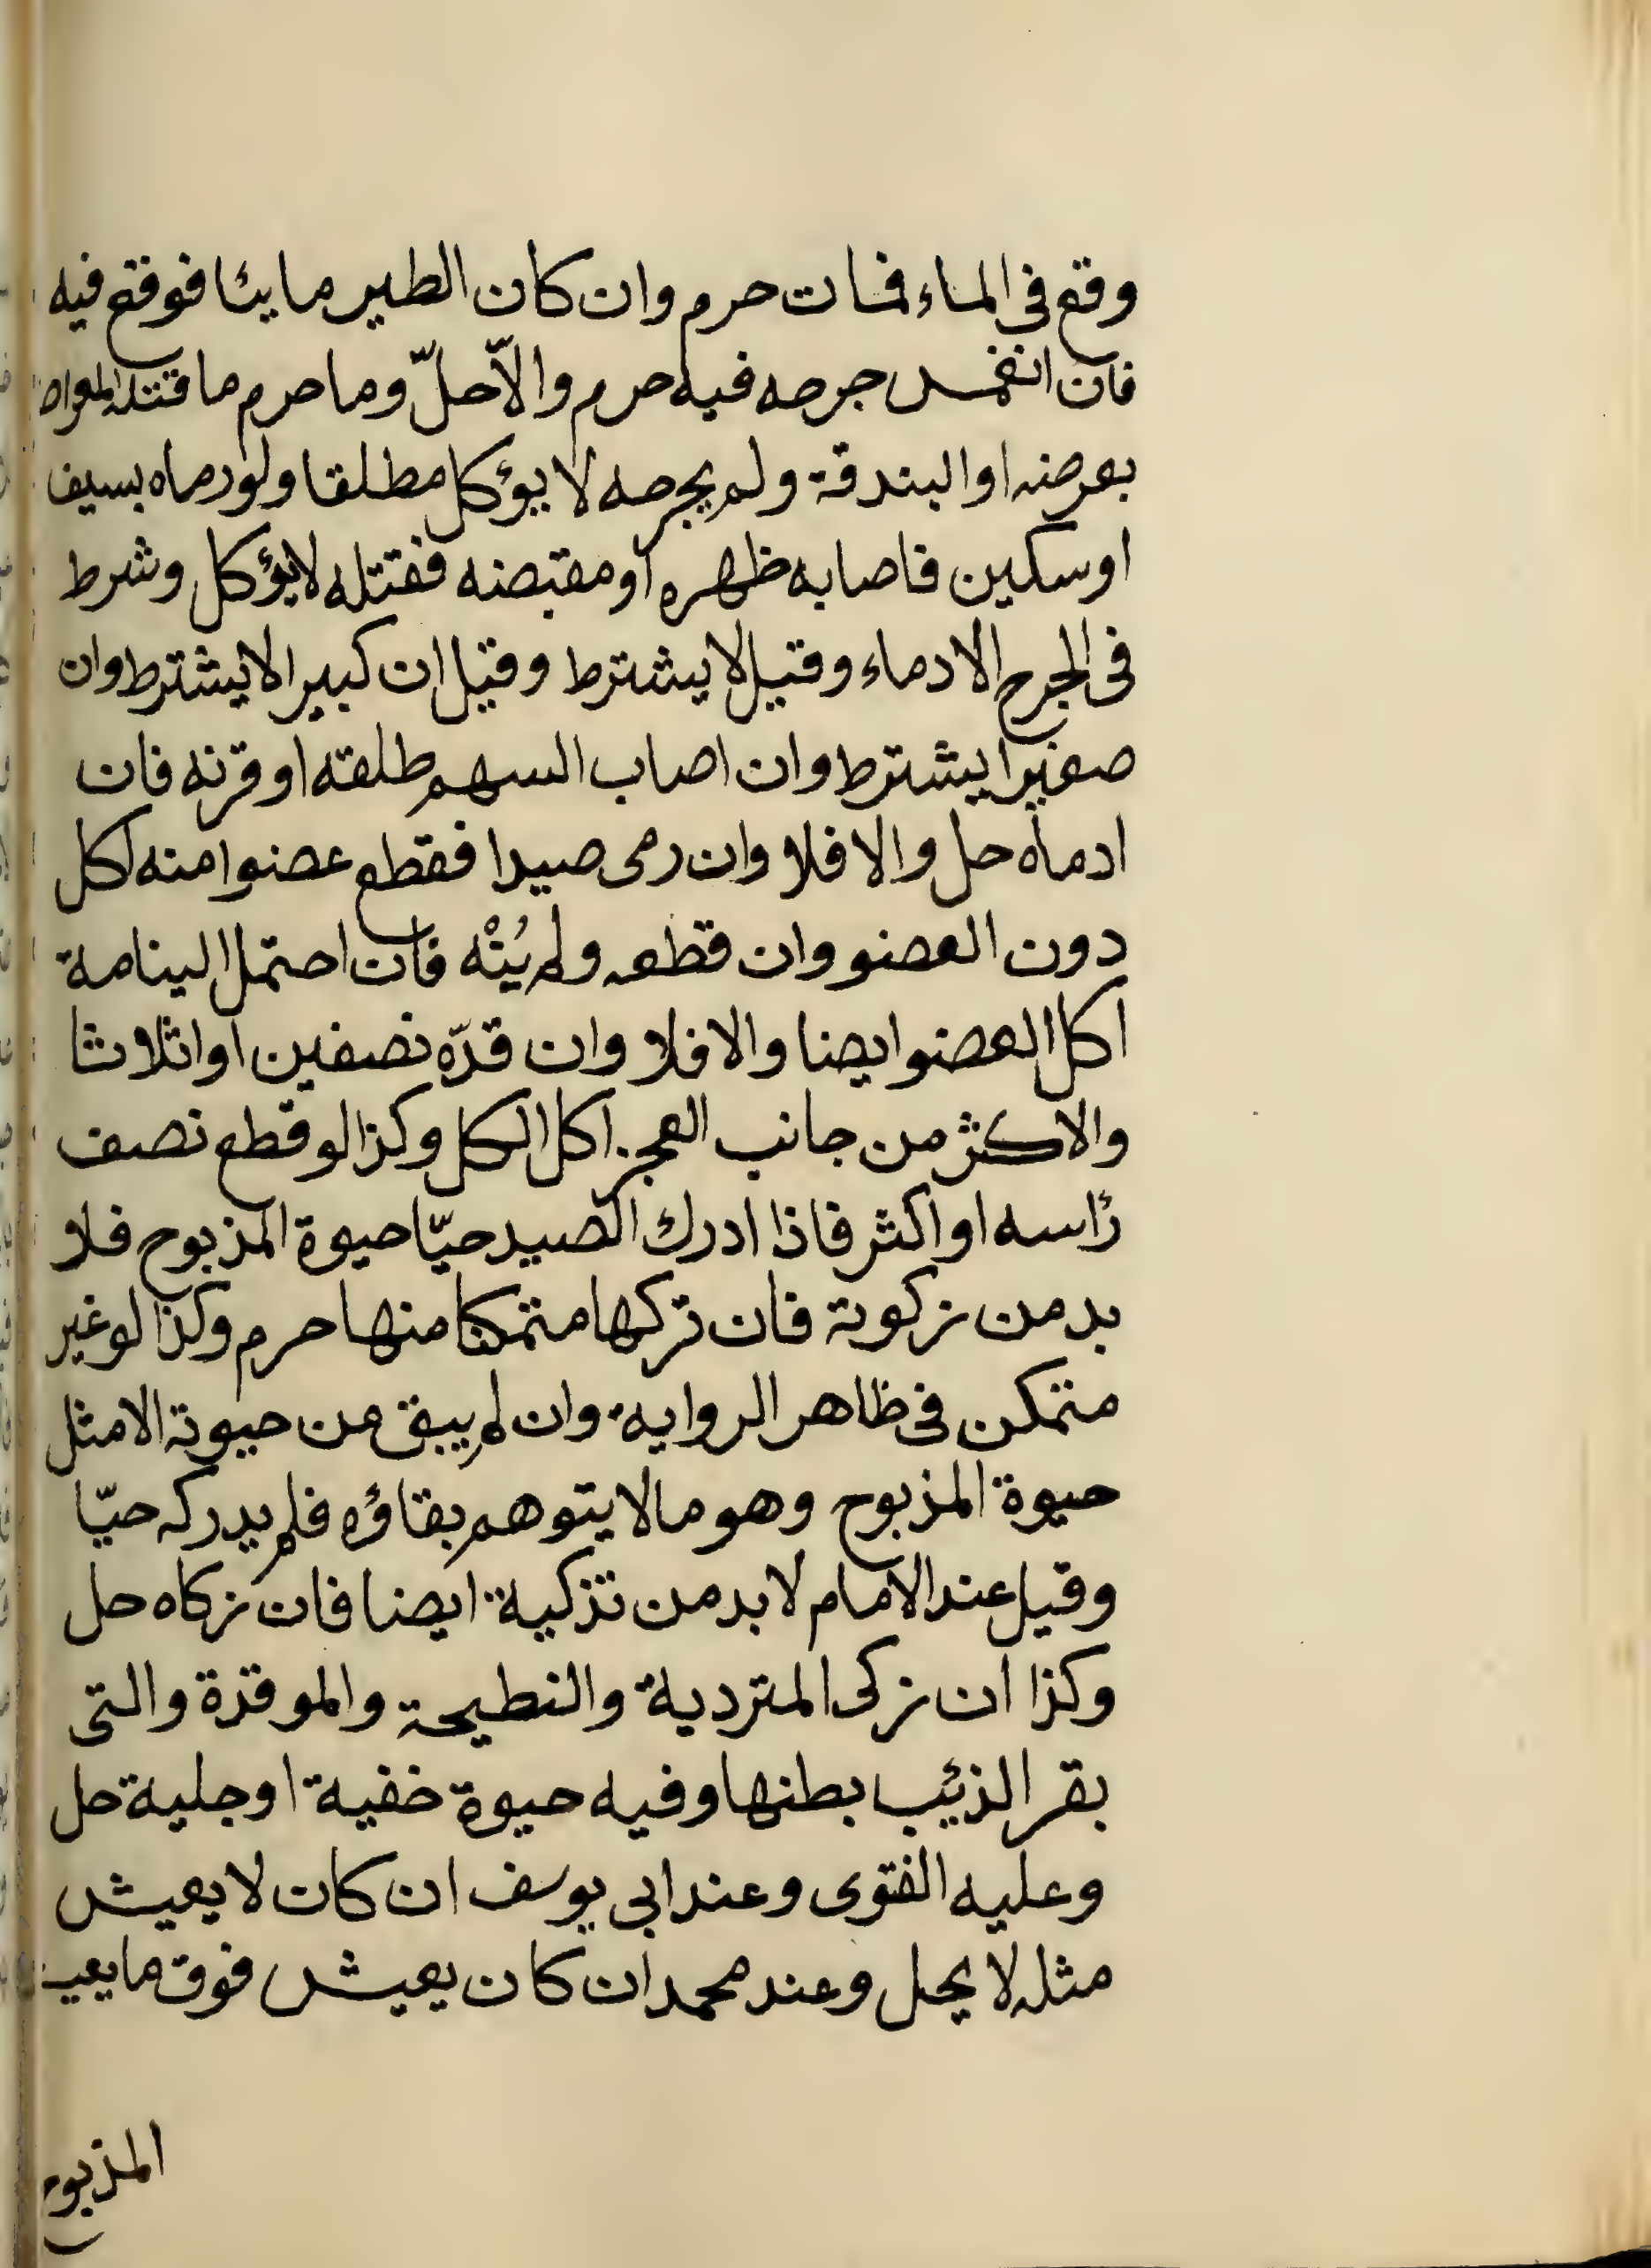 وقع في الماء فمات حرم وان كان الطير مايئا فوقع فيه
فان انغمس جرحه فيه حرم والاّ حلّ وما حرم ما قتله المعراض
بعرضه او البندقة ولم يجرحه لا يؤكل مطلقا ولو رماه بسيف
او سكين فاصابه ظهره او مقبضه فقتله لا يؤكل وشرط
في الجرح الادماء وقيل لا يشترط وقيل ان كبيرا لا يشترط وان
صغيرا يشترط وان اصاب السهم ظلفه او قرنه فان
ادماه حل والا فلا وان رمى صيدا فقطع عضوا منه اكل
دون العضو وان قطعه ولم يُبنْه فان احتمل اليتامة
اكل العضو ايضا والا فلا وان قدّه نصفين او اثلاثا
والاكثر من جانب العجز اكل الكل وكذا لو قطع نصف
رأسه او اكثر فاذا ادرك الصيد حيّا حيوة المذبوح فلا
بد من زكوته فان تركها متمكنا منها حرم وكذا لو غير
متمكن في ظاهر الرواية وان لم يبق من حيوته الا مثل
حيوة المذبوح وهو مالا يتوهم بقاؤه فلم يدركه حيّا
وقيل عند الامام لا بد من تذكية ايضا فان زكاه حل
وكذا ان زكى المتردية والنطيحة والموقذة والتى
بقر الذئب بطنها وفيه حيوة خفية او جلية حل
وعليه الفتوى وعند ابي يوسف ان كان لا يعيش
مثله لا يحل وعند محمد ان كان يعيش فوق ما يعيش
المذبوح